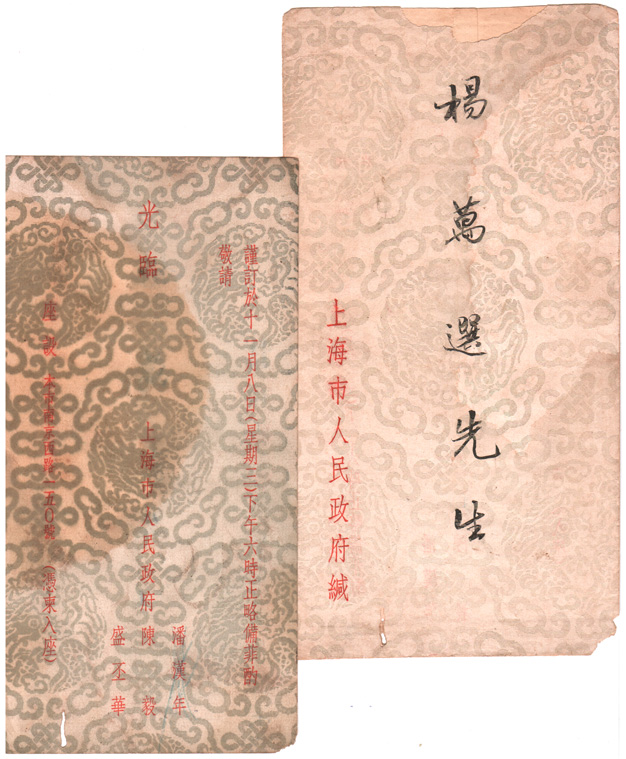 楊萬選先生
上海市人民政府緘
謹訂於十一月八日(星期三)下午六時正略備菲酌
敬請
光臨
潘漢年
上海市人民政府陳毅
盛丕華
座設 本市南京西路一五0號 (憑柬入座)